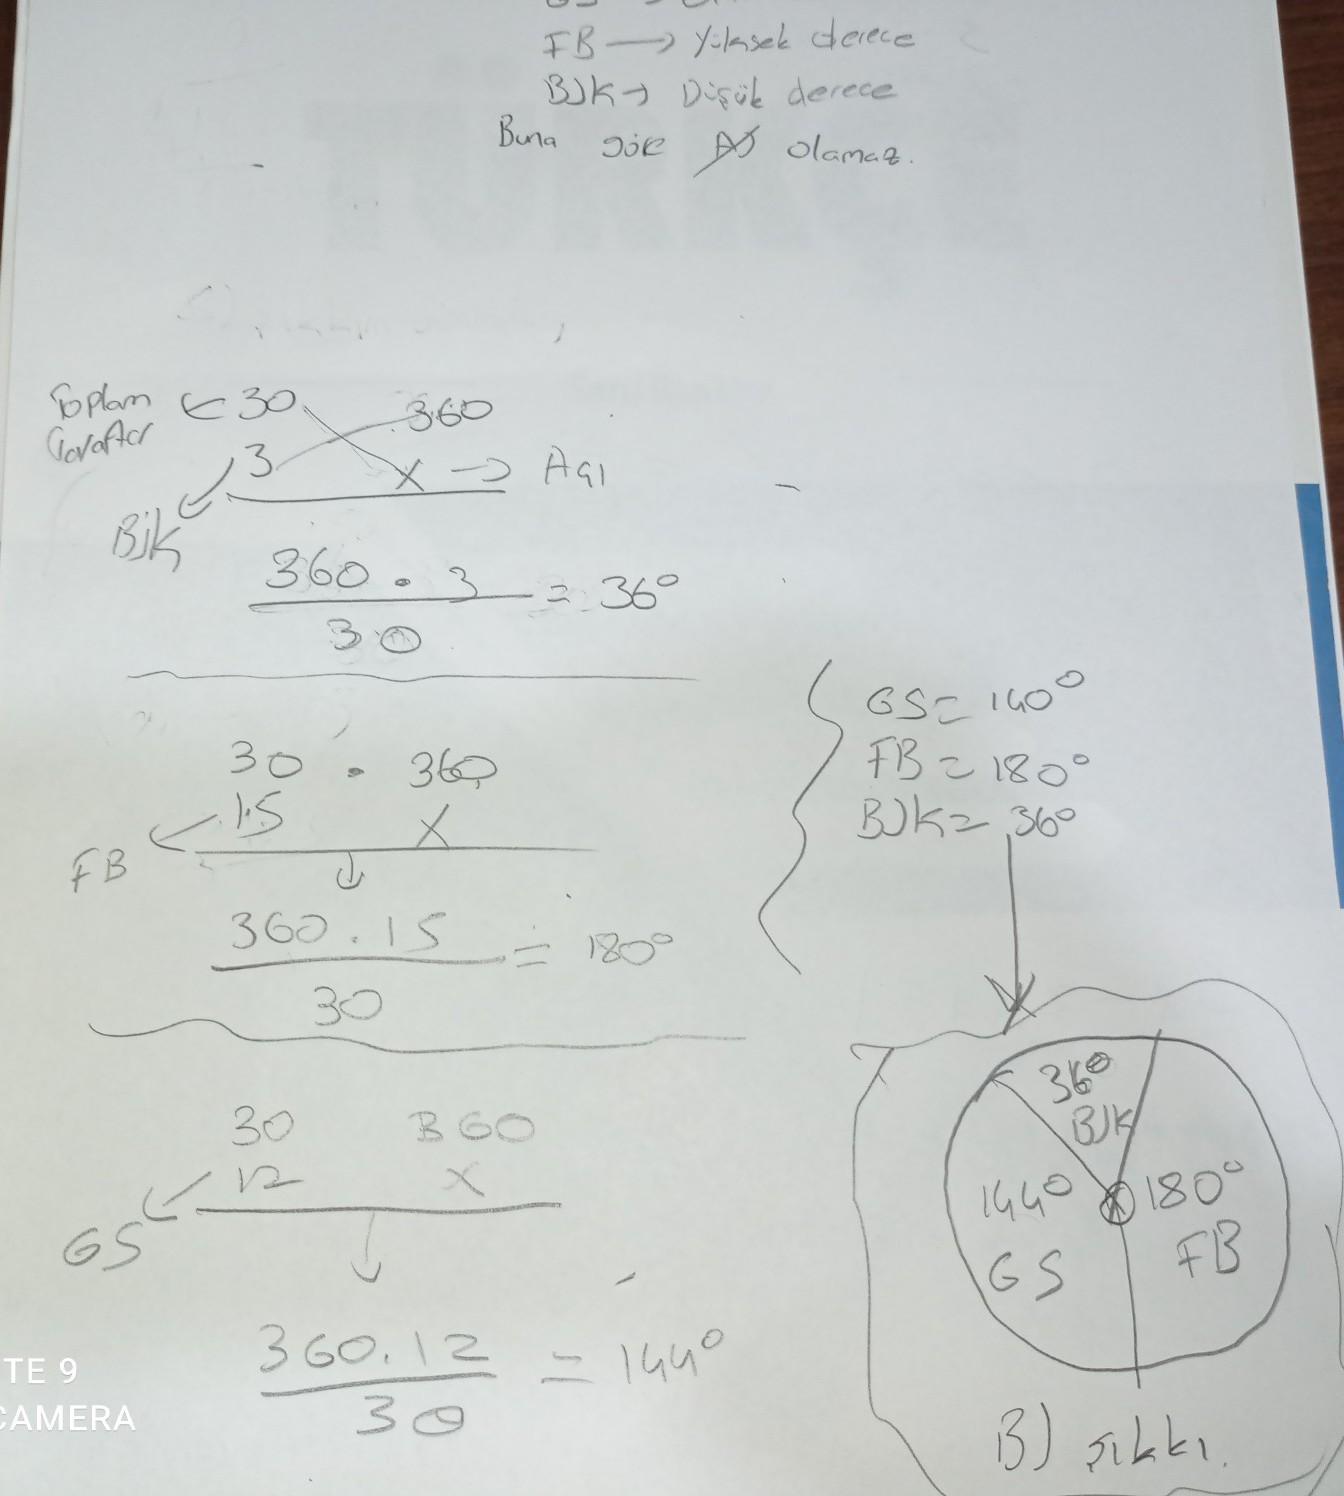 FB → Yüksek derece
BJK → Düşük derece
Buna göre olamaz.
Toplam Taraftar ← 30 360
3 x → Açı
BJK
360 . 3 = 36°
30
30 . 360
15 x
FB
360 . 15 = 180°
30
30 360
12 x
GS
360 . 12 = 144°
30
GS = 140°
FB = 180°
BJK = 36°
36°
BJK
144° 180°
GS FB
B) şıkkı.
TE 9
CAMERA